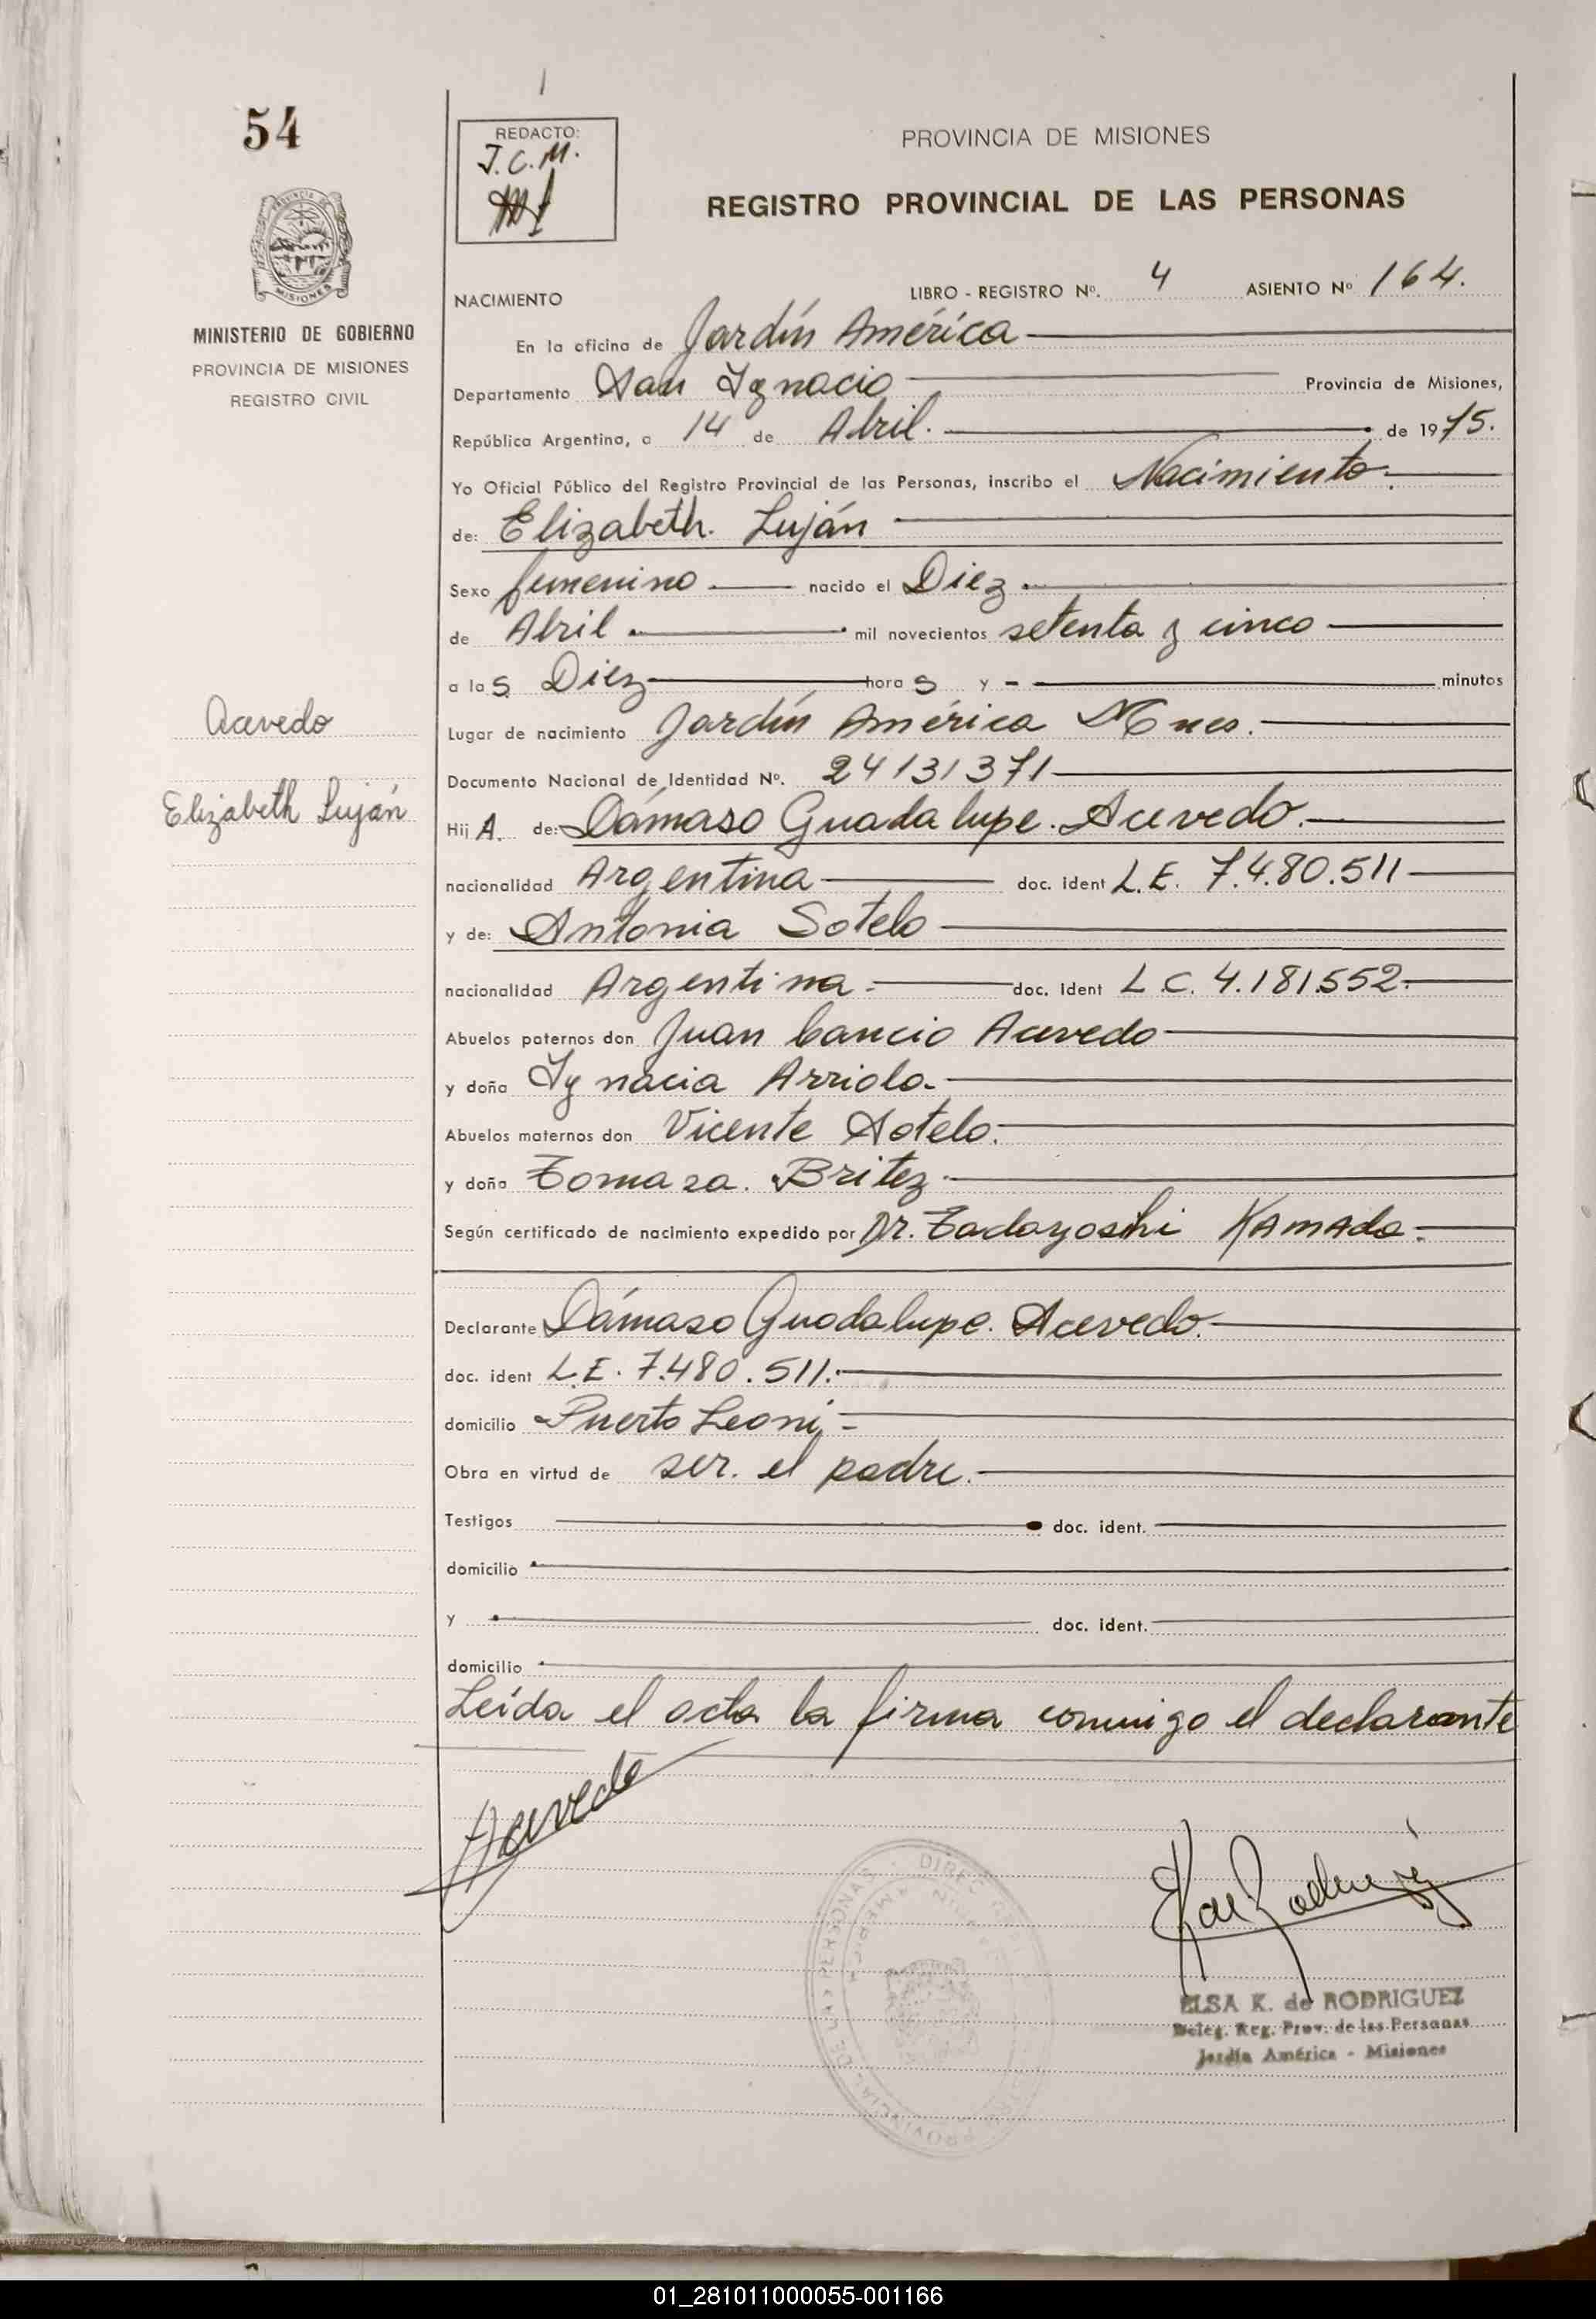 54
REDACTO:
J.C.M.
PROVINCIA DE MISIONES
REGISTRO PROVINCIAL DE LAS PERSONAS
MISIONES
MINISTERIO DE GOBIERNO
PROVINCIA DE MISIONES
REGISTRO CIVIL
NACIMIENTO LIBRO - REGISTRO Nº. 4 ASIENTO Nº 164.
En la oficina de Jardín América
Departamento San Ignacio Provincia de Misiones,
República Argentina, a 14 de Abril. de 1975.
Yo Oficial Público del Registro Provincial de las Personas, inscribo el Nacimiento.
de: Elizabeth. Luján
Sexo femenino nacido el Diez
de Abril mil novecientos setenta y cinco
a las Diez horas y - minutos
Acevedo
Elizabeth Luján
Lugar de nacimiento Jardín América Mnes.
Documento Nacional de Identidad Nº. 24131371
Hij A. de: Dámaso Guadalupe. Acevedo.
nacionalidad Argentina doc. ident L.E. 7.4.80.511
y de: Antonia Sotelo
nacionalidad Argentina. doc. Ident L.C. 4.181.552.
Abuelos paternos don Juan Cancio Acevedo
y doña Ignacia Arriola.
Abuelos maternos don Vicente Sotelo.
y doña Tomasa. Britez.
Según certificado de nacimiento expedido por Dr. Tadayoshi KAMAda.
Declarante Dámaso Guadalupe. Acevedo.
doc. ident L.E. 7.480.511.
domicilio Puerto Leoni,
Obra en virtud de ser. el padre.
Testigos doc. ident.
domicilio
y doc. ident.
domicilio
Leída el acta la firma conmigo el declarante
Acevedo
ELSA K. de RODRIGUEZ
Deleg. Reg. Prov. de las Personas
Jardín América - Misiones
01_281011000055-001166